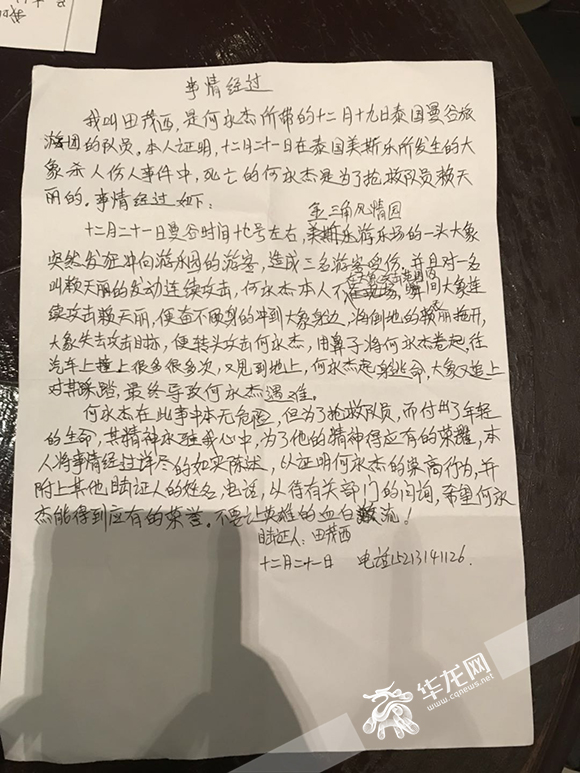 事情经过
我叫田茂西，是何永杰所带的十二月十九日泰国曼谷旅
游团的队员。本人证明，十二月二十一日在泰国美斯乐所发生的大
象杀人伤人事件中，死亡的何永杰是为了抢救队员赖天
丽的。事情经过如下：
金三角风情园
十二月二十一日曼谷时间 左右，美斯乐游乐场的一头大象
突然发狂冲向游乐园的游客，造成三名游客受伤，并且对一名
叫赖天丽的发动连续攻击，何永杰本人不在现场，瞬间大象连
续攻击赖天丽，便奋不顾身的冲到大象身边，将倒地的赖天丽拖开，
大象失去攻击目标，便转头攻击何永杰，用鼻子将何永杰卷起，往
汽车上撞上很多很多次，又 到地上，何永杰起身逃命，大象又追上
对其踩踏，最终导致何永杰遇难。
何永杰在此事中本无危险，但为了抢救队员，而付出了年轻
的生命，其精神永驻我心中，为了他的精神得应有的荣耀，本
人将事情经过详尽的如实陈述，以证明何永杰的崇高行为，并
附上其他 证人的姓名，电话，以待有关部门的问询，希望何永
杰能得到应有的荣誉。不要让英雄的血白流！
证人：田茂西
十二月二十一日 电话15213141126.
华龙网
www.cqnews.net